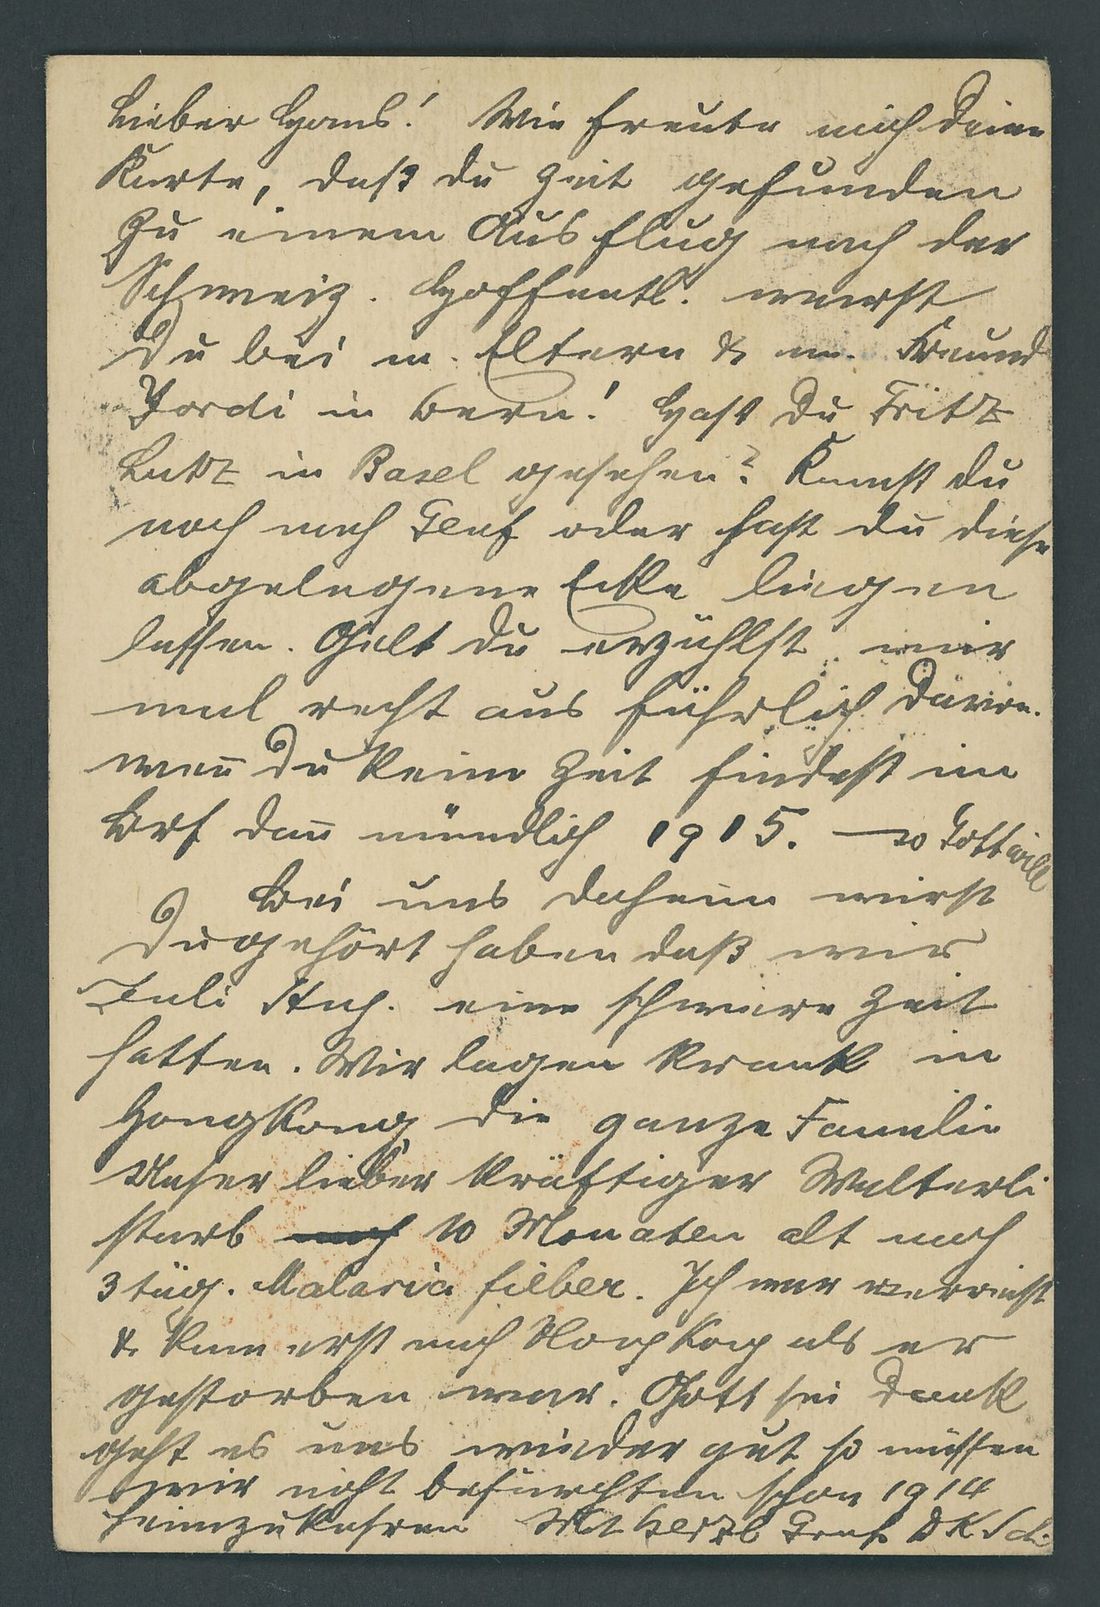 Lieber Hans! Wie freute mich Deine
Karte, daß du Zeit gefunden
zu einem Ausflug nach der
Schweiz. Hoffentl. warst
Du bei m. Eltern & m. Freund
Jordi in Bern! Hast Du Fritz
Lutz in Basel gesehen? Kamst du
noch nach Genf oder hast du diese
abgelegene Ecke liegen
lassen. Gelt Du erzählst mir
mal recht ausführlich davon.
wenn Du keine Zeit findest im
Brf dann mündlich 1915. — so Gott will
Bei uns daheim wirst
Du gehört haben daß wir
Juli Aug. eine schwere Zeit
hatten. Wir lagen krank in
Hongkong die ganze Familie
Unser lieber kräftiger Walterli
starb 10 Monaten alt nach
3 täg. Malaria fieber. Ich war verreist
& kam erst nach Hongkong als er
gestorben war. Gott sei Dank
geht es uns wieder gut so müssen
wir nicht befürchten schon 1914
heimzukehren Mit herzl Gruß D K Sch.